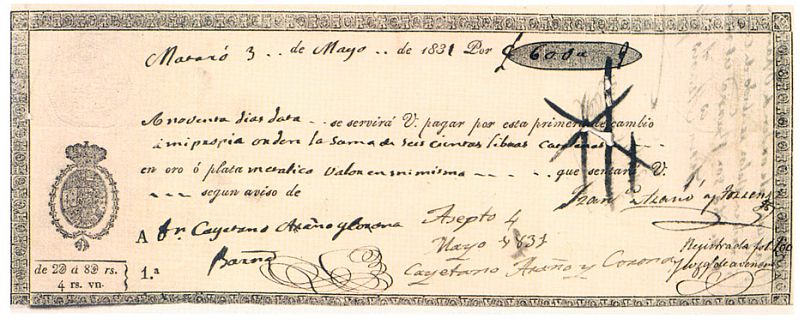 Mataró 3 .. de Mayo .. de 1831 Por £ 600 „ „
A noventa dias data - - se servirá V. pagar por esta primera de cambio
á mi propia orden la suma de seis cientas libras Catalanas - - -
en oro ó plata metalico valor en mi mismo - - - - - que sentará V.
- - - segun aviso de
A Dn. Cayetano Araño y Corona
Barna
Asepto 4
Mayo 1831
Cayetano Araño y Corona
Registrada fol.
de 2@ á 8@ rs.
4 rs. vn.
1.a